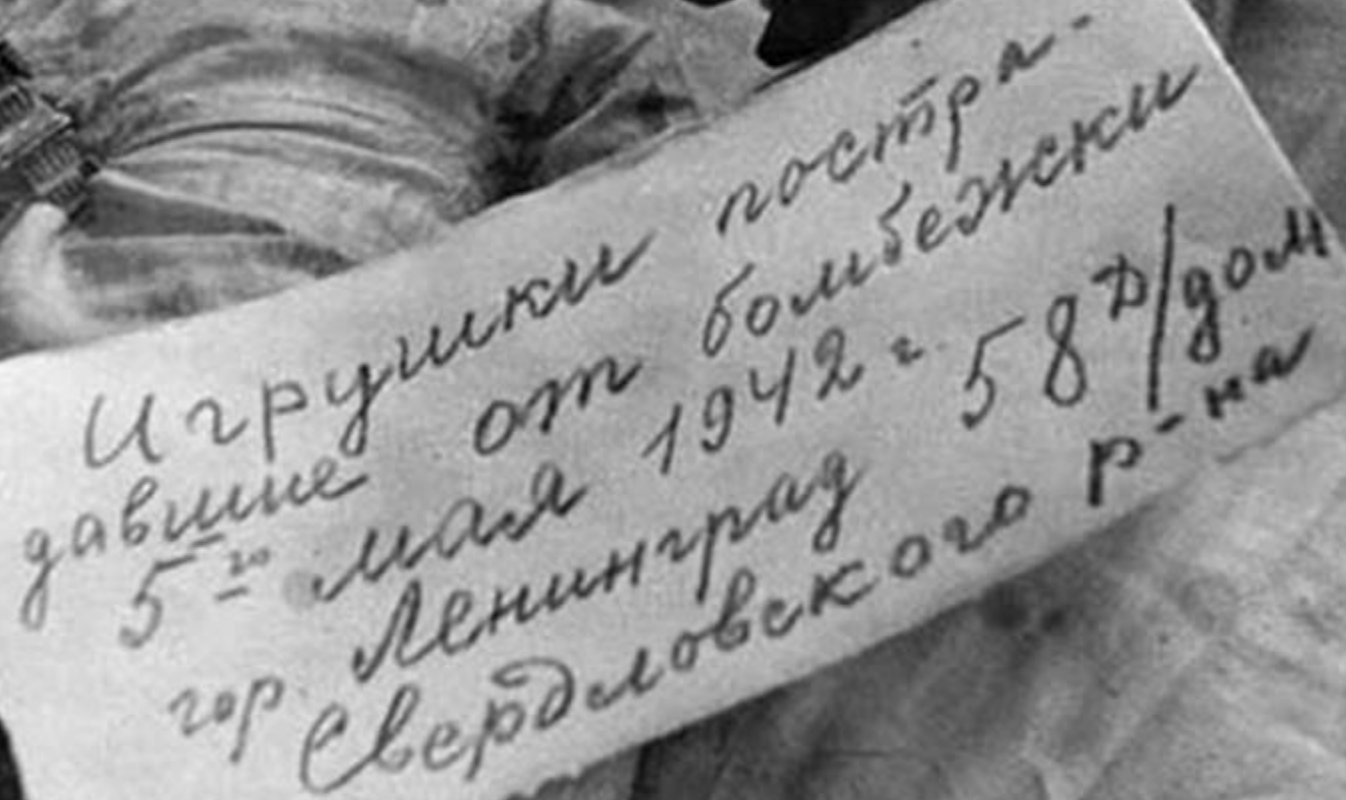 Игрушки постра-
давшие от бомбежки
5-го мая 1942 г.
гор. Ленинград 58 д/дом
Свердловского р-на